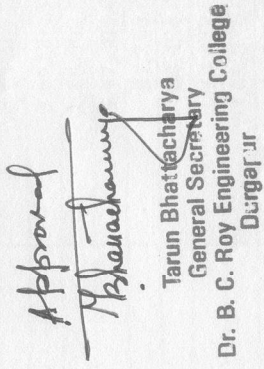 Approved
TBhattacharya
Tarun Bhattacharya
General Secretary
Dr. B. C. Roy Engineering College
Durgapur